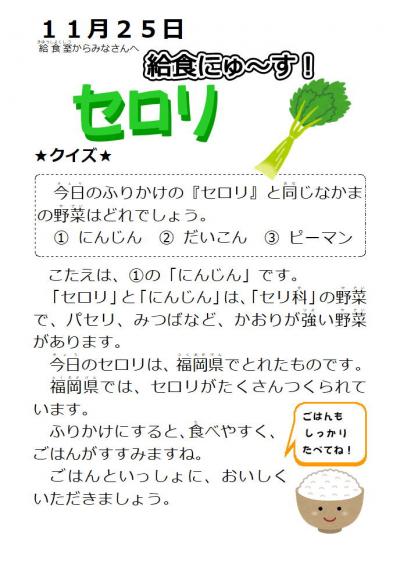 １１月２５日
給食室からみなさんへ
給食にゅ～す！
セロリ
★クイズ★
今日のふりかけの『セロリ』と同じなかま
の野菜はどれでしょう。
① にんじん ② だいこん ③ ピーマン
こたえは、①の「にんじん」です。
「セロリ」と「にんじん」は、「セリ科」の野菜
で、パセリ、みつばなど、かおりが強い野菜
があります。
今日のセロリは、福岡県でとれたものです。
福岡県では、セロリがたくさんつくられて
います。
ふりかけにすると、食べやすく、
ごはんがすすみますね。
ごはんといっしょに、おいしく
いただきましょう。
ごはんも
しっかり
たべてね！